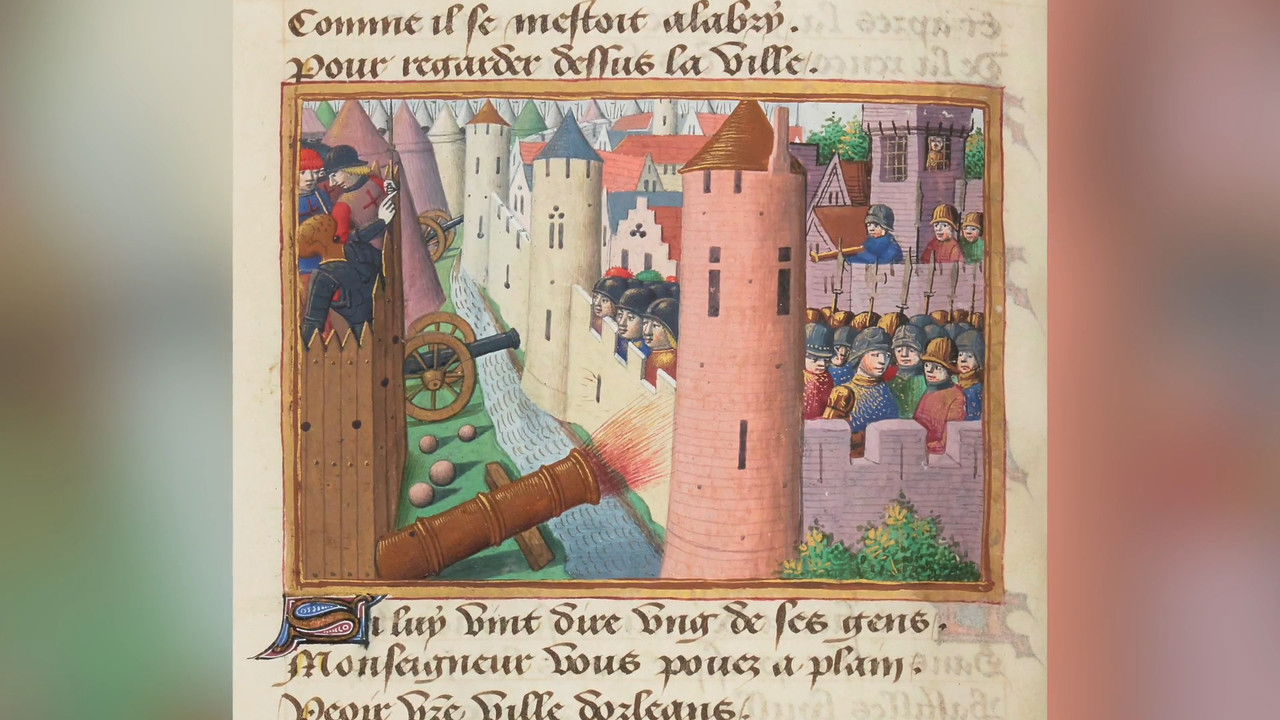 Comme il se mestoit alabry.
Pour regarder dessus la ville.
Si luy vint dire vng de ses gens.
Monseigneur vous pouez a plain.
Veoir vr̃e ville dorleans.